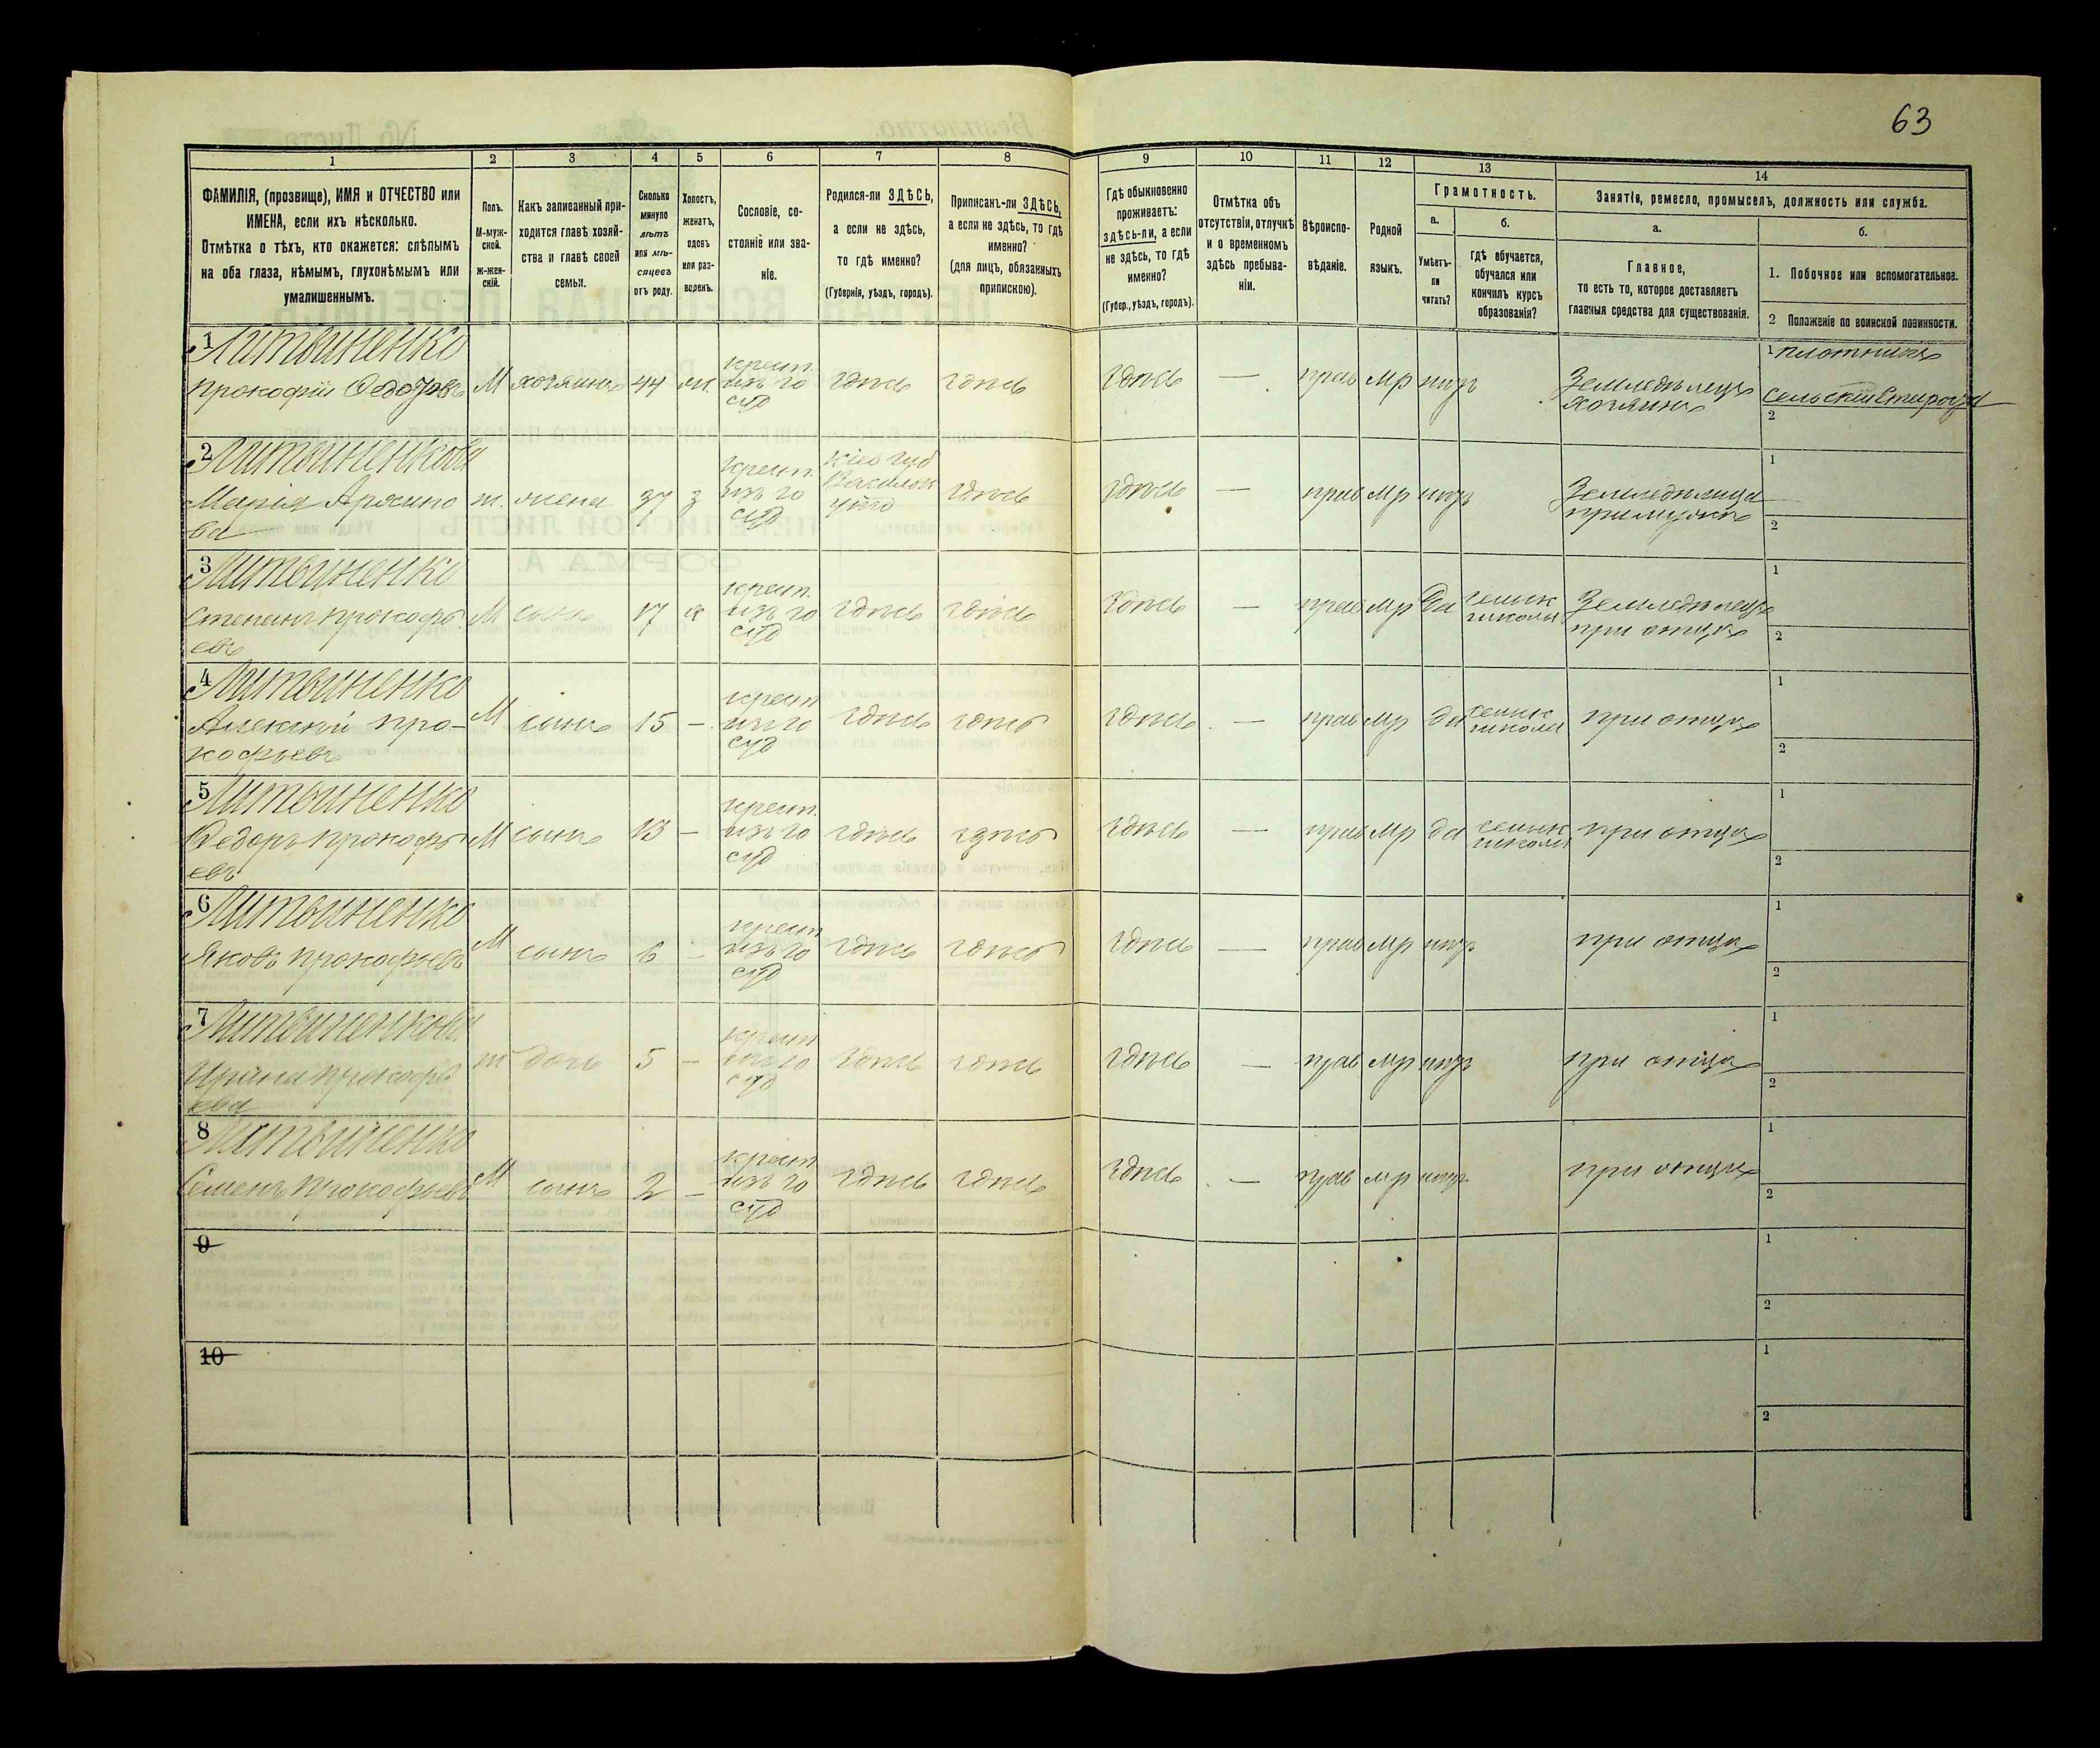 63
1
2
3
4
5
6
7
8
9
10
11
12
13
14
ФАМИЛІЯ, (прозвище), ИМЯ и ОТЧЕСТВО или
ИМЕНА, если ихъ нѣсколько.
Отмѣтка о тѣхъ, кто окажется: слѣпымъ
на оба глаза, нѣмымъ, глухонѣмымъ или
умалишеннымъ.
Полъ.
М-муж-
ской.
ж-жен-
скій.
Какъ записанный при-
ходится главѣ хозяй-
ства и главѣ своей
семьи.
Сколько
минуло
лѣтъ
или мѣ-
сяцевъ
отъ роду.
Холостъ,
женатъ,
вдовъ
или раз-
веденъ.
Сословіе, со-
стояніе или зва-
ніе.
Родился-ли ЗДѢСЬ,
а если не здѣсь,
то гдѣ именно?
(Губернія, уѣздъ, городъ).
Приписанъ-ли ЗДѢСЬ,
а если не здѣсь, то гдѣ
именно?
(для лицъ, обязанныхъ
припискою).
Гдѣ обыкновенно
проживаетъ:
здѣсь-ли, а если
не здѣсь, то гдѣ
именно?
(Губер., уѣздъ, городъ).
Отмѣтка объ
отсутствіи, отлучкѣ
и о временномъ
здѣсь пребыва-
ніи.
Вѣроиспо-
вѣданіе.
Родной
языкъ.
Грамотность.
а.
Умѣетъ-
ли
читать?
б.
гдѣ обучается,
обучался или
кончилъ курсъ
образованія?
Занятіе, ремесло, промыселъ, должность или служба.
а.
Главное,
то есть то, которое доставляетъ
главныя средства для существованія.
б.
1. Побочное или вспомогательное.
2 Положеніе по воинской повинности.
1 Литвиненко
Прокофій Федоровъ М хозяинъ 44 ж. крест. изъ го суд здѣсь здѣсь здѣсь — прав мр нѣтъ Земледѣлецъ хозяинъ 1 плотникъ
Сельскій Староста
2
2 Литвиненкова
Марія ж. жена 37 з крест. изъ го суд Кіев губ Васильк у здѣсь здѣсь — прав мр нѣтъ Земледѣлица при мужѣ 1
2
3 Литвиненко
Степанъ Прокофь М сынъ 17 х крест. изъ го суд здѣсь здѣсь здѣсь — прав мр да сельск школѣ Земледѣлецъ при отцѣ 1
евъ 2
4 Литвиненко
Алексѣй Про- М сынъ 15 — крест изъ го суд здѣсь здѣсь здѣсь — прав мр да сельск школѣ при отцѣ 1
кофьевъ 2
5 Литвиненко
Ѳедоръ Прокофь М сынъ 13 — крест. изъ го суд здѣсь здѣсь здѣсь — прав мр да сельск школѣ при отцѣ 1
евъ 2
6 Литвиненко
Яковъ Прокофьевъ М сынъ 6 — крест изъ го суд здѣсь здѣсь здѣсь — прав мр нѣтъ при отцѣ 1
2
7 Литвиненкова
Ирина Прокофь ж дочь 5 — крест изъ го суд здѣсь здѣсь здѣсь — прав мр нѣтъ при отцѣ 1
ева 2
8 Литвиненко
Семенъ Прокофьевъ М сынъ 2 — крест изъ го суд здѣсь здѣсь здѣсь — прав мр нѣтъ при отцѣ 1
2
9
1
2
10
1
2